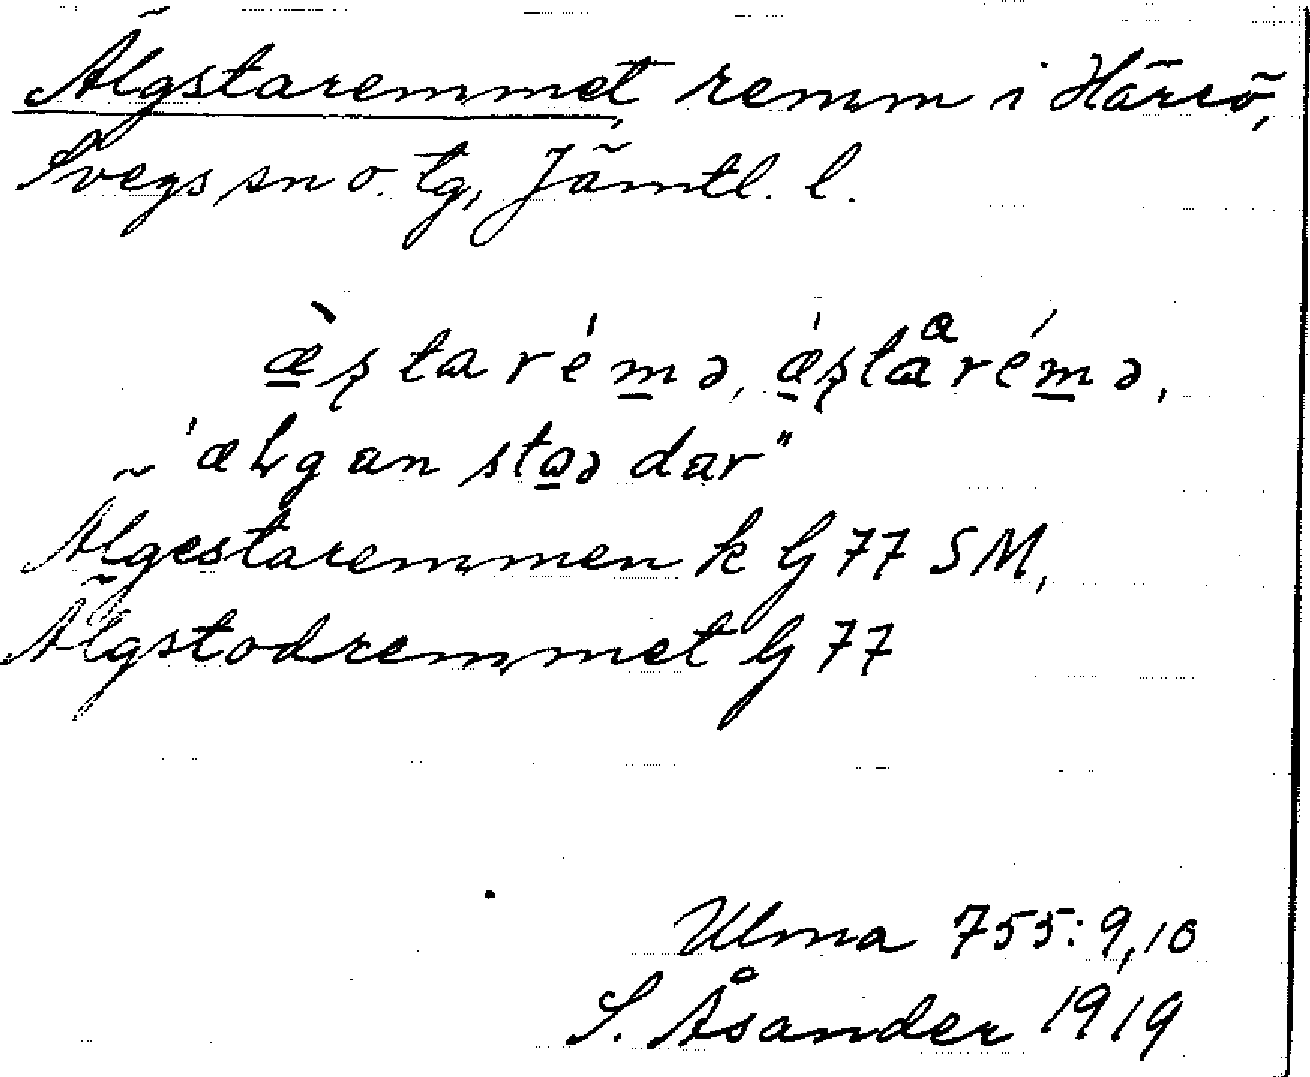 Älgstaremmet, remm i Härsö,
Svegs sn o. tg, Jämtl. l.
æ̀ʂtarémə, æ̀ʂtåarémə,
"æLgan staədar"
Älgestaremmen k G 77 SM,
Älgstodremmet G 77
Ulma 755:9,10
S. Åsander 1919